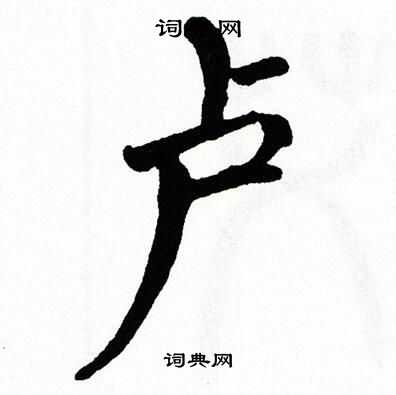 词典网
卢
词典网